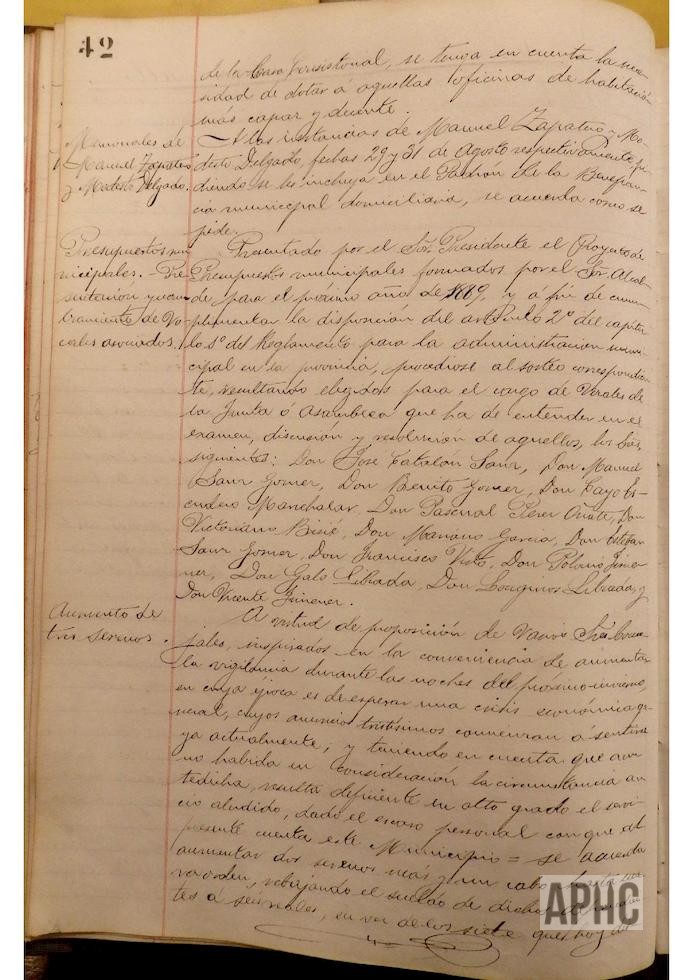 42
de la Casa Consistorial, se tenga en cuenta la nece-
sidad de dotar á aquellas oficinas de habitación
más capaz y decente.
Memoriales de
Manuel Zapatero
y Modesto Delgado.
A las instancias de Manuel Zapatero y Mo-
desto Delgado, fechas 29 y 31 de Agosto respectivamente, pi-
diendo se les incluya en el Padrón de la Beneficen-
cia municipal domiciliaria, se acuerda como se
pide.
Presupuestos mu-
nicipales. - Pre-
sentación y nom-
bramiento de Vo-
cales asociados.
Presentado por el Sor. Presidente el Proyecto de
Presupuestos municipales formados por el Sor. Alcal-
de para el próximo año de 1889, y á fin de cum-
plimentar la disposición del artículo 2º del capítu-
lo 5º del Reglamento para la administración muni-
cipal en la provincia, procediose al sorteo correspondien-
te, resultando elegidos para el cargo de Vocales de
la Junta ó Asamblea que ha de entender en el
examen, discusión y resolución de aquellos, los Sres.
siguientes: Don José Catalán Sanz, Don Manuel
Sanz Gomez, Don Benito Gomez, Don Cayo Es-
cudero Manchalar, Don Pascual Perez Oñate, Don
Victoriano Bisié, Don Mariano Garcia, Don Esteban
Sanz Gomez, Don Francisco Visto, Don Polonio Jime-
nez, Don Galo Librada, Don Longinos Librada, y
Don Vicente Jimenez.
Aumento de
tres serenos.
A virtud de proposición de varios Sres. Conce-
jales, inspirados en la conveniencia de aumentar
la vigilancia durante las noches del próximo invierno,
en cuya época es de esperar una crisis económica ge-
neral, cuyos anuncios tristísimos comienzan á sentirse
ya actualmente; y teniendo en cuenta que aun
no habida en consideración la circunstancia an-
tedicha, resulta deficiente en alto grado el servi-
cio aludido, dado el escaso personal con que al
presente cuenta este Municipio = se acuerda
aumentar dos serenos más y un cabo hasta nue-
va orden, rebajando el sueldo de dichos
tes á seis reales, en vez de los siete que hoy
APHC